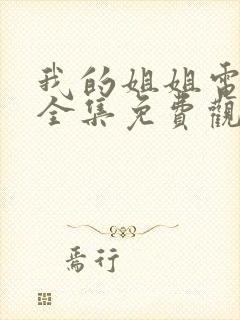 我的姐姐電
全集免費觀
焉行